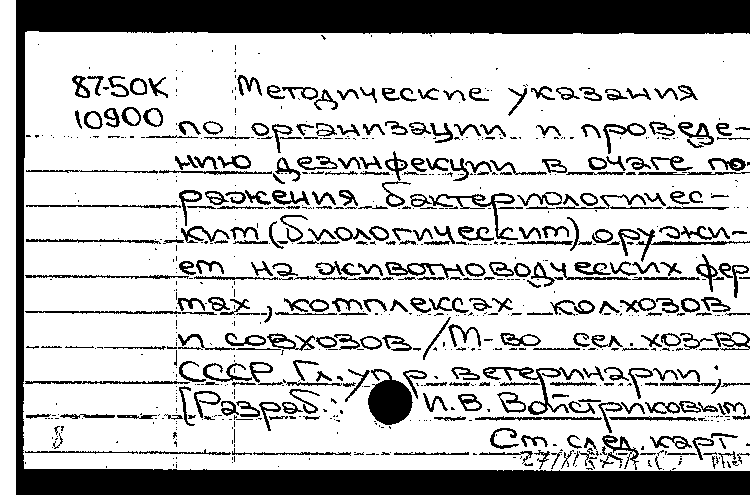 87-50К Методические указания
10900 по организации и проведе-
нию дезинфекции в очаге по-
ражения бактериологичес-
ким (биологическим) оружи-
ем на животноводческих фер
мах, комплексах колхозов
и совхозов / М-во сел. хоз-ва
СССР. Гл. упр. ветеринарии;
[Разраб.: И.В. Войстриковым
8 Ст. след. карт